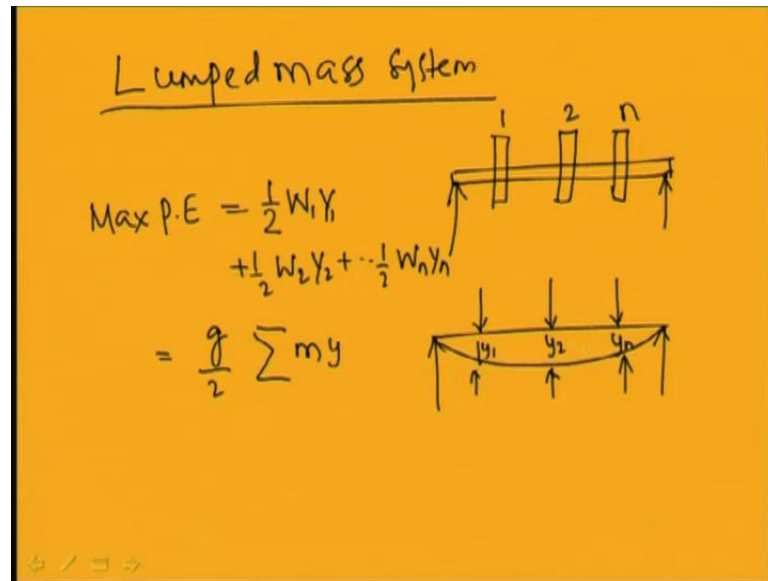 Lumped mass system
1 2 n
Max P.E = 1/2 W₁Y₁
+ 1/2 W₂Y₂ + ·· 1/2 WₙYₙ
= g/2 ∑ my
y₁ y₂ yₙ